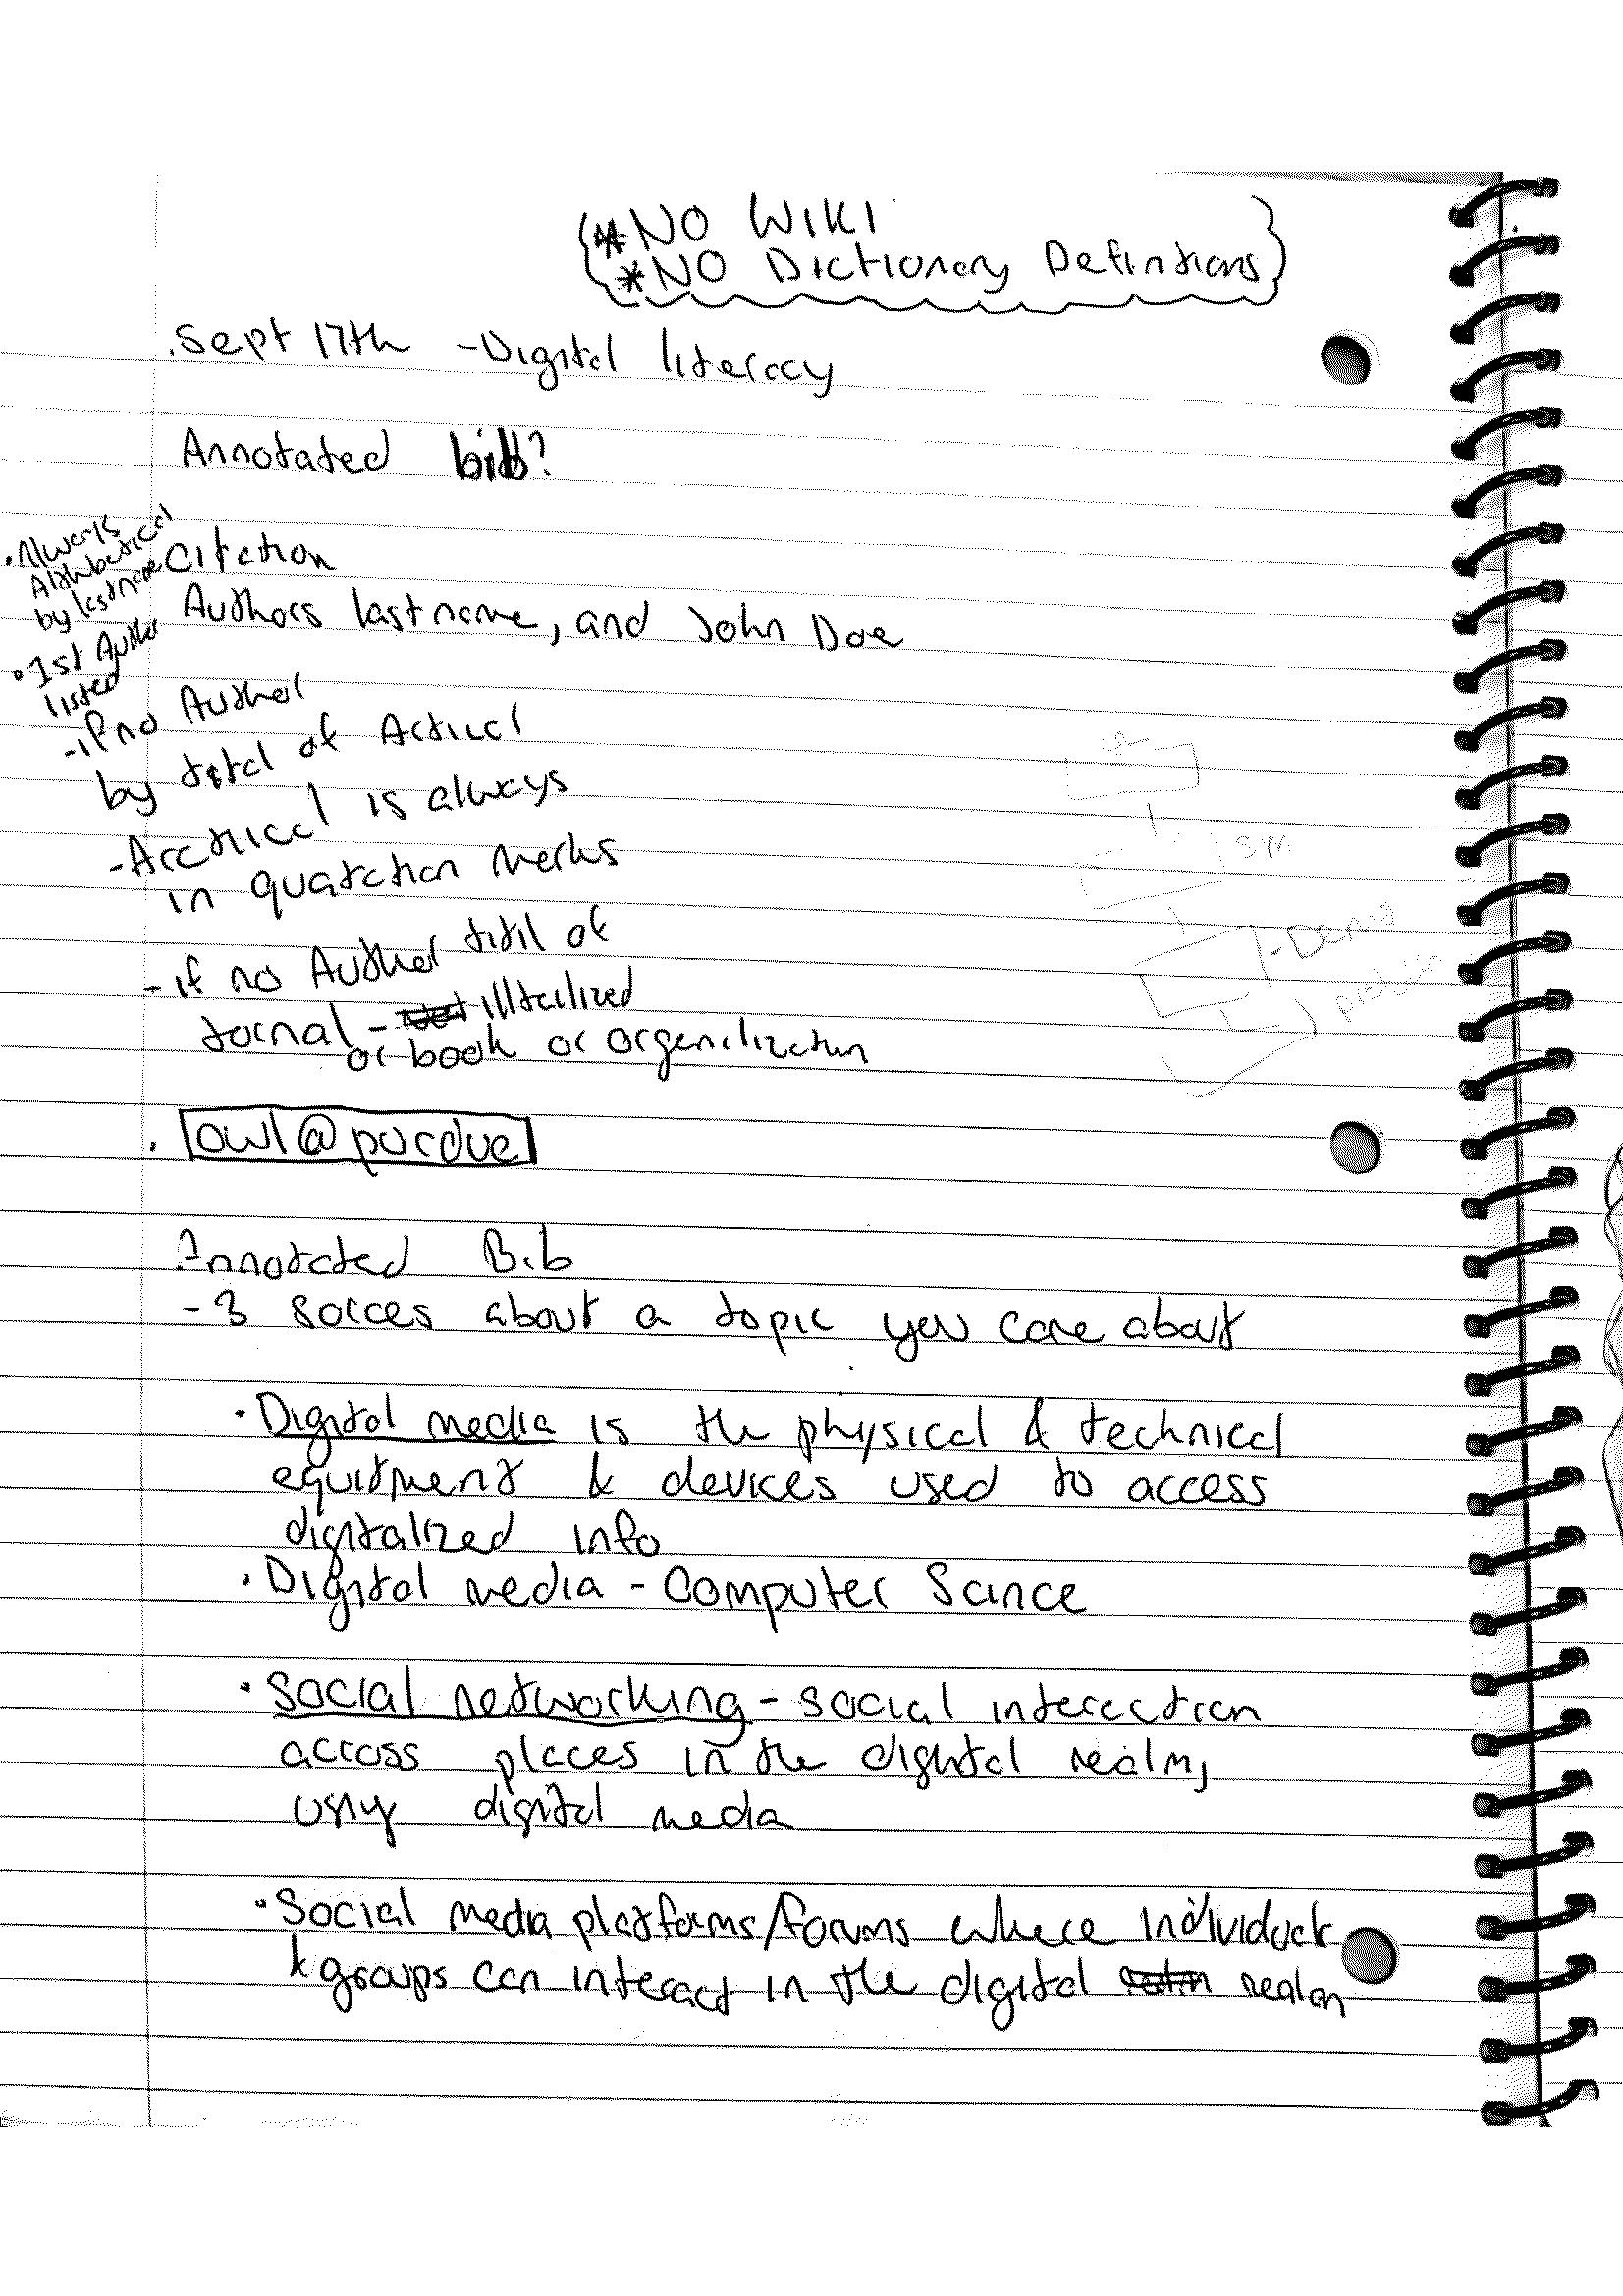 *NO WIKI
*NO Dictionary Definitions
.Sept 17th -Digital literacy
Annotated bib?
•Always
Alphbetical
by lastname
•1st Author
listed
Citation
Authors lastname, and John Doe
-if no Author
by total of Actical
-Arctical is always
in quatation marks
-if no Author titil of
Jornal - illtailized
or book or orgenilization
. owl@purdue
Annotated Bib
-3 sorces about a topic you care about
•Digital media is the physical & technical
equitment & devices used to access
digitalized info
•Digital media - Computer Scince
•Social networking - social interaction
across places in the digital realm,
using digital media
•Social media platforms/forums where individuals
& groups can interact in the digital realm
SM